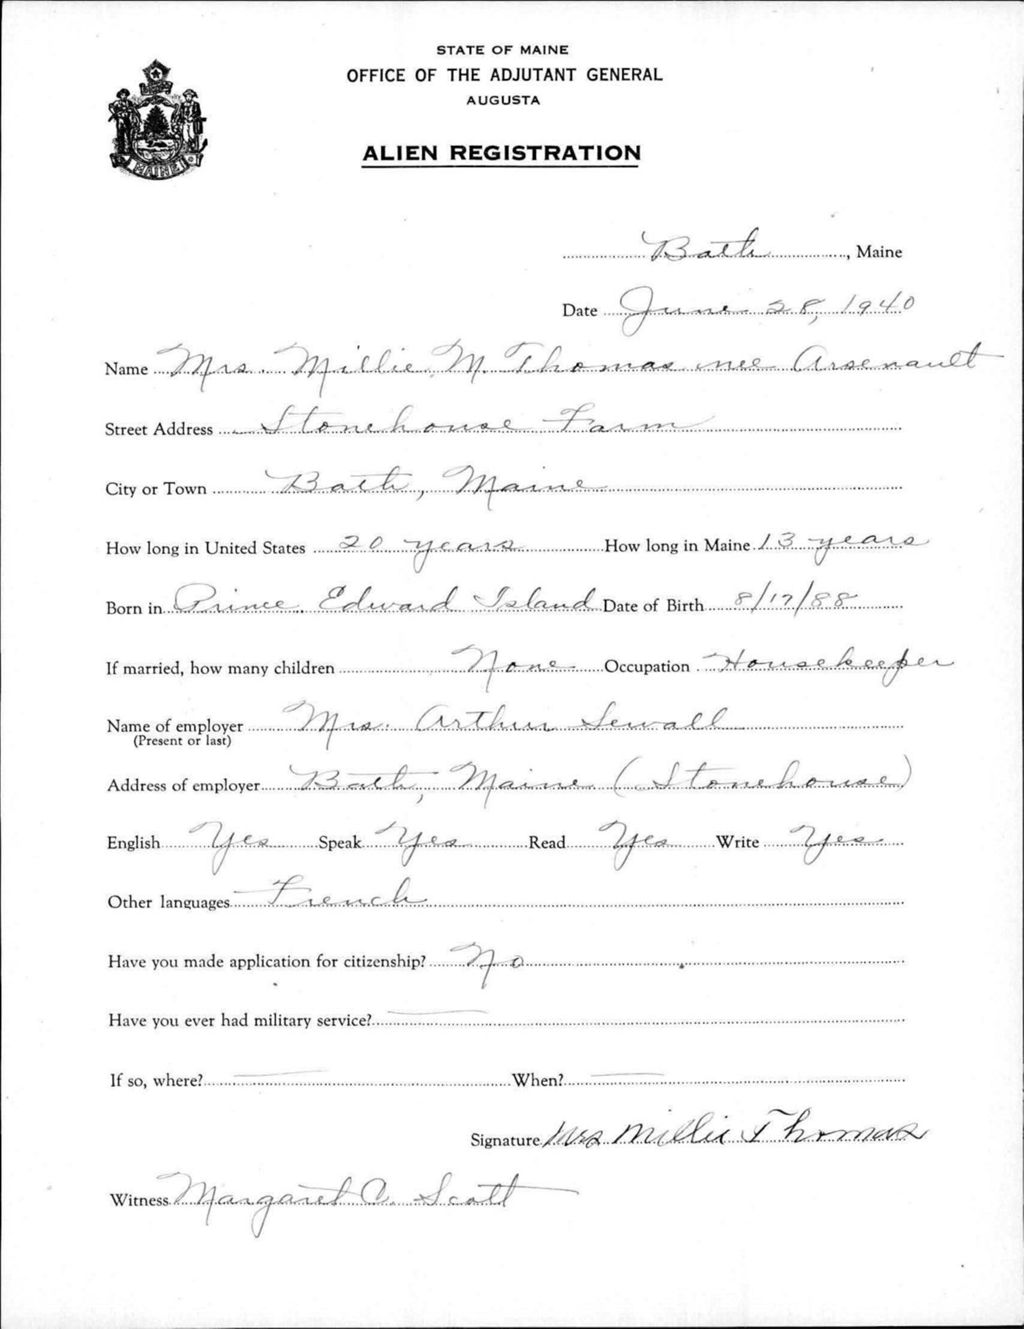 STATE OF MAINE
OFFICE OF THE ADJUTANT GENERAL
AUGUSTA
ALIEN REGISTRATION
MAINE
Bath, Maine
Date June 28, 1940
Name Mrs. Millie M. Thomas nee Arsenault
Street Address Stonehouse Farm
City or Town Bath, Maine
How long in United States 20 years How long in Maine 13 years
Born in Prince Edward Island Date of Birth 8/17/88
If married, how many children None Occupation Housekeeper
Name of employer Mrs. Arthur Sewall
(Present or last)
Address of employer Bath, Maine (Stonehouse)
English Yes Speak Yes Read Yes Write Yes
Other languages French
Have you made application for citizenship? No
Have you ever had military service? —
If so, where? — When? —
Signature Mrs Millie Thomas
Witness Margaret C. Scott